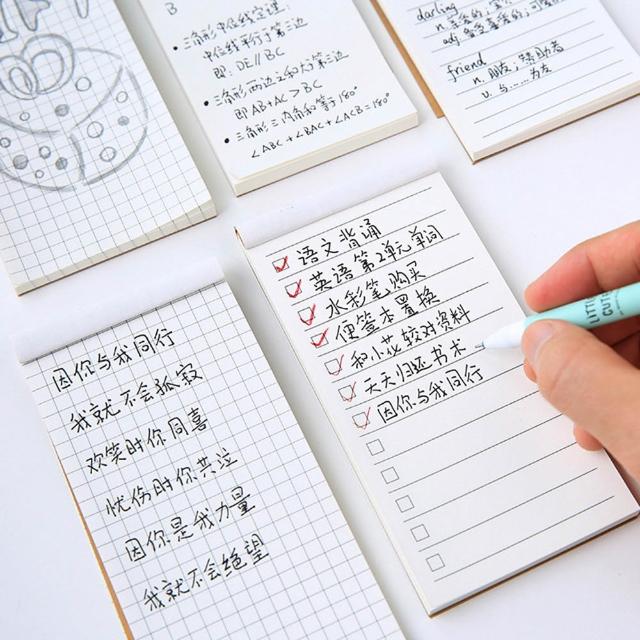 B
• 三角形中位线定理:
中位线平行于第三边
即: DE // BC
• 三角形两边之和大于第三边
即 AB+AC > BC
• 三角形三内角和等于180°
∠ABC + ∠BAC + ∠ACB = 180°
darling
friend
n. 朋友;
v. 与……为友
语文背诵
英语第2单元单词
水彩笔购买
便签本置换
和小花校对资料
天天归题书术
因你与我同行
因你与我同行
我就不会孤寂
欢笑时你同喜
忧伤时你共泣
因你是我力量
我就不会绝望
LITTLE